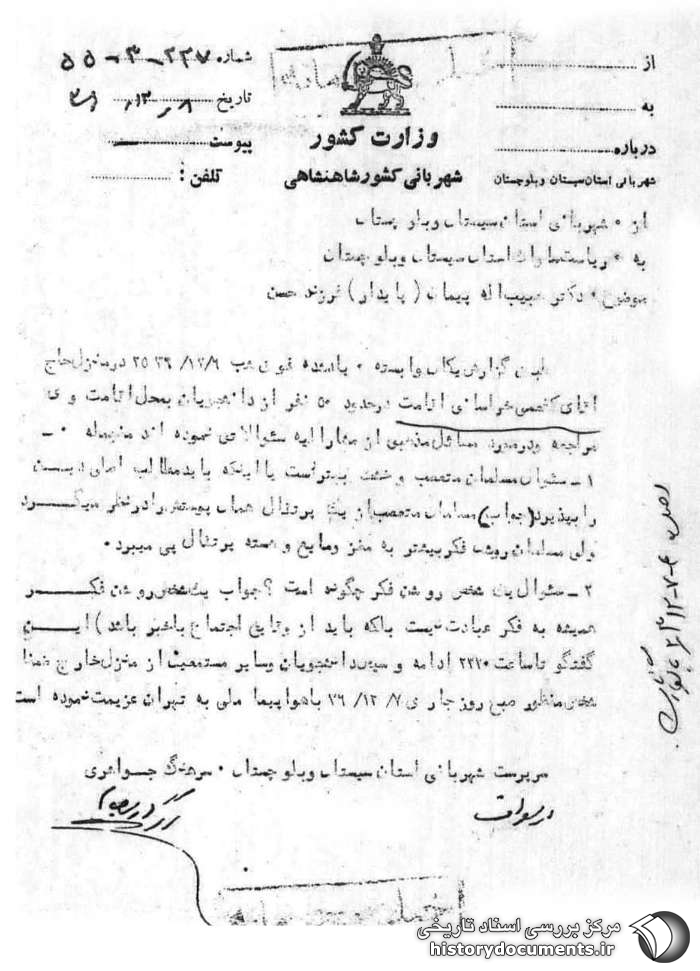 از
به
درباره
شهربانی استان سیستان و بلوچستان
وزارت کشور
شهربانی کشور شاهنشاهی
شماره ۵۵-۳-۲۲۷
تاریخ ۸ /۱۲/
پیوست
تلفن :
خیلی محرمانه
از • شهربانی استان سیستان و بلوچستان
به • ریاست ساواک استان سیستان و بلوچستان
موضوع • دکتر حبیب اله پیمان ( پایدار ) فرزند حسن
طبق گزارش یکان وابسته • یاشده فوق شب ۱۲/۶/ ۲۵۳۶ در منزل حاج
آقای کفعمی خراسانی اقامت و حدود ۵۰ نفر از دانشجویان بمحل اقامت وی
مراجعه و در مورد مسائل مذهبی از مشارالیه سئوالاتی نموده اند منجمله • ـ
۱ـ سئوال مسلمان متعصب و خشک بهتر است یا اینکه باید مطالب اصلی دیـــن
را بپذیرد (جواب) مسلمان متعصب از یک پرتقال همان پوستش را در نظر میگـــرد
ولی مسلمان روشن فکر بیشتر به مغز و مایع و هسته پرتقال پی میبرد •
۲ـ سئوال یک شخص روشن فکر چگونه است ؟ جواب یک شخص روشن فکـــــر
همیشه به فکر عبادت نیست بلکه باید از وقایع اجتماع باخبر باشد ) ایـــن
گفتگو تا ساعت ۲۲۳۰ ادامه و سپس دانشجویان و سایر مستمعین از منزل خارج ضمنا
شخص منظور صبح روز جاری ۷/ ۱۲/ ۳۶ با هواپیما ملی به تهران عزیمت نموده است
سرپرست شهربانی استان سیستان و بلوچستان • سرهنگ جـــواهری
خیلی محرمانه
مرکز بررسی اسناد تاریخی
historydocuments.ir